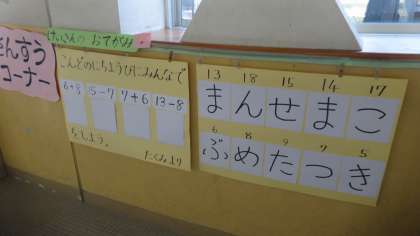 さんすう
コーナー
けいさんの おてがみ
こんどのにちようびにみんなで
6+8 15-7 7+6 13-8
をしよう。
たくみより
13 18 15 14 17
まんせまこ
6 8 9 7 5
ぶめたつき